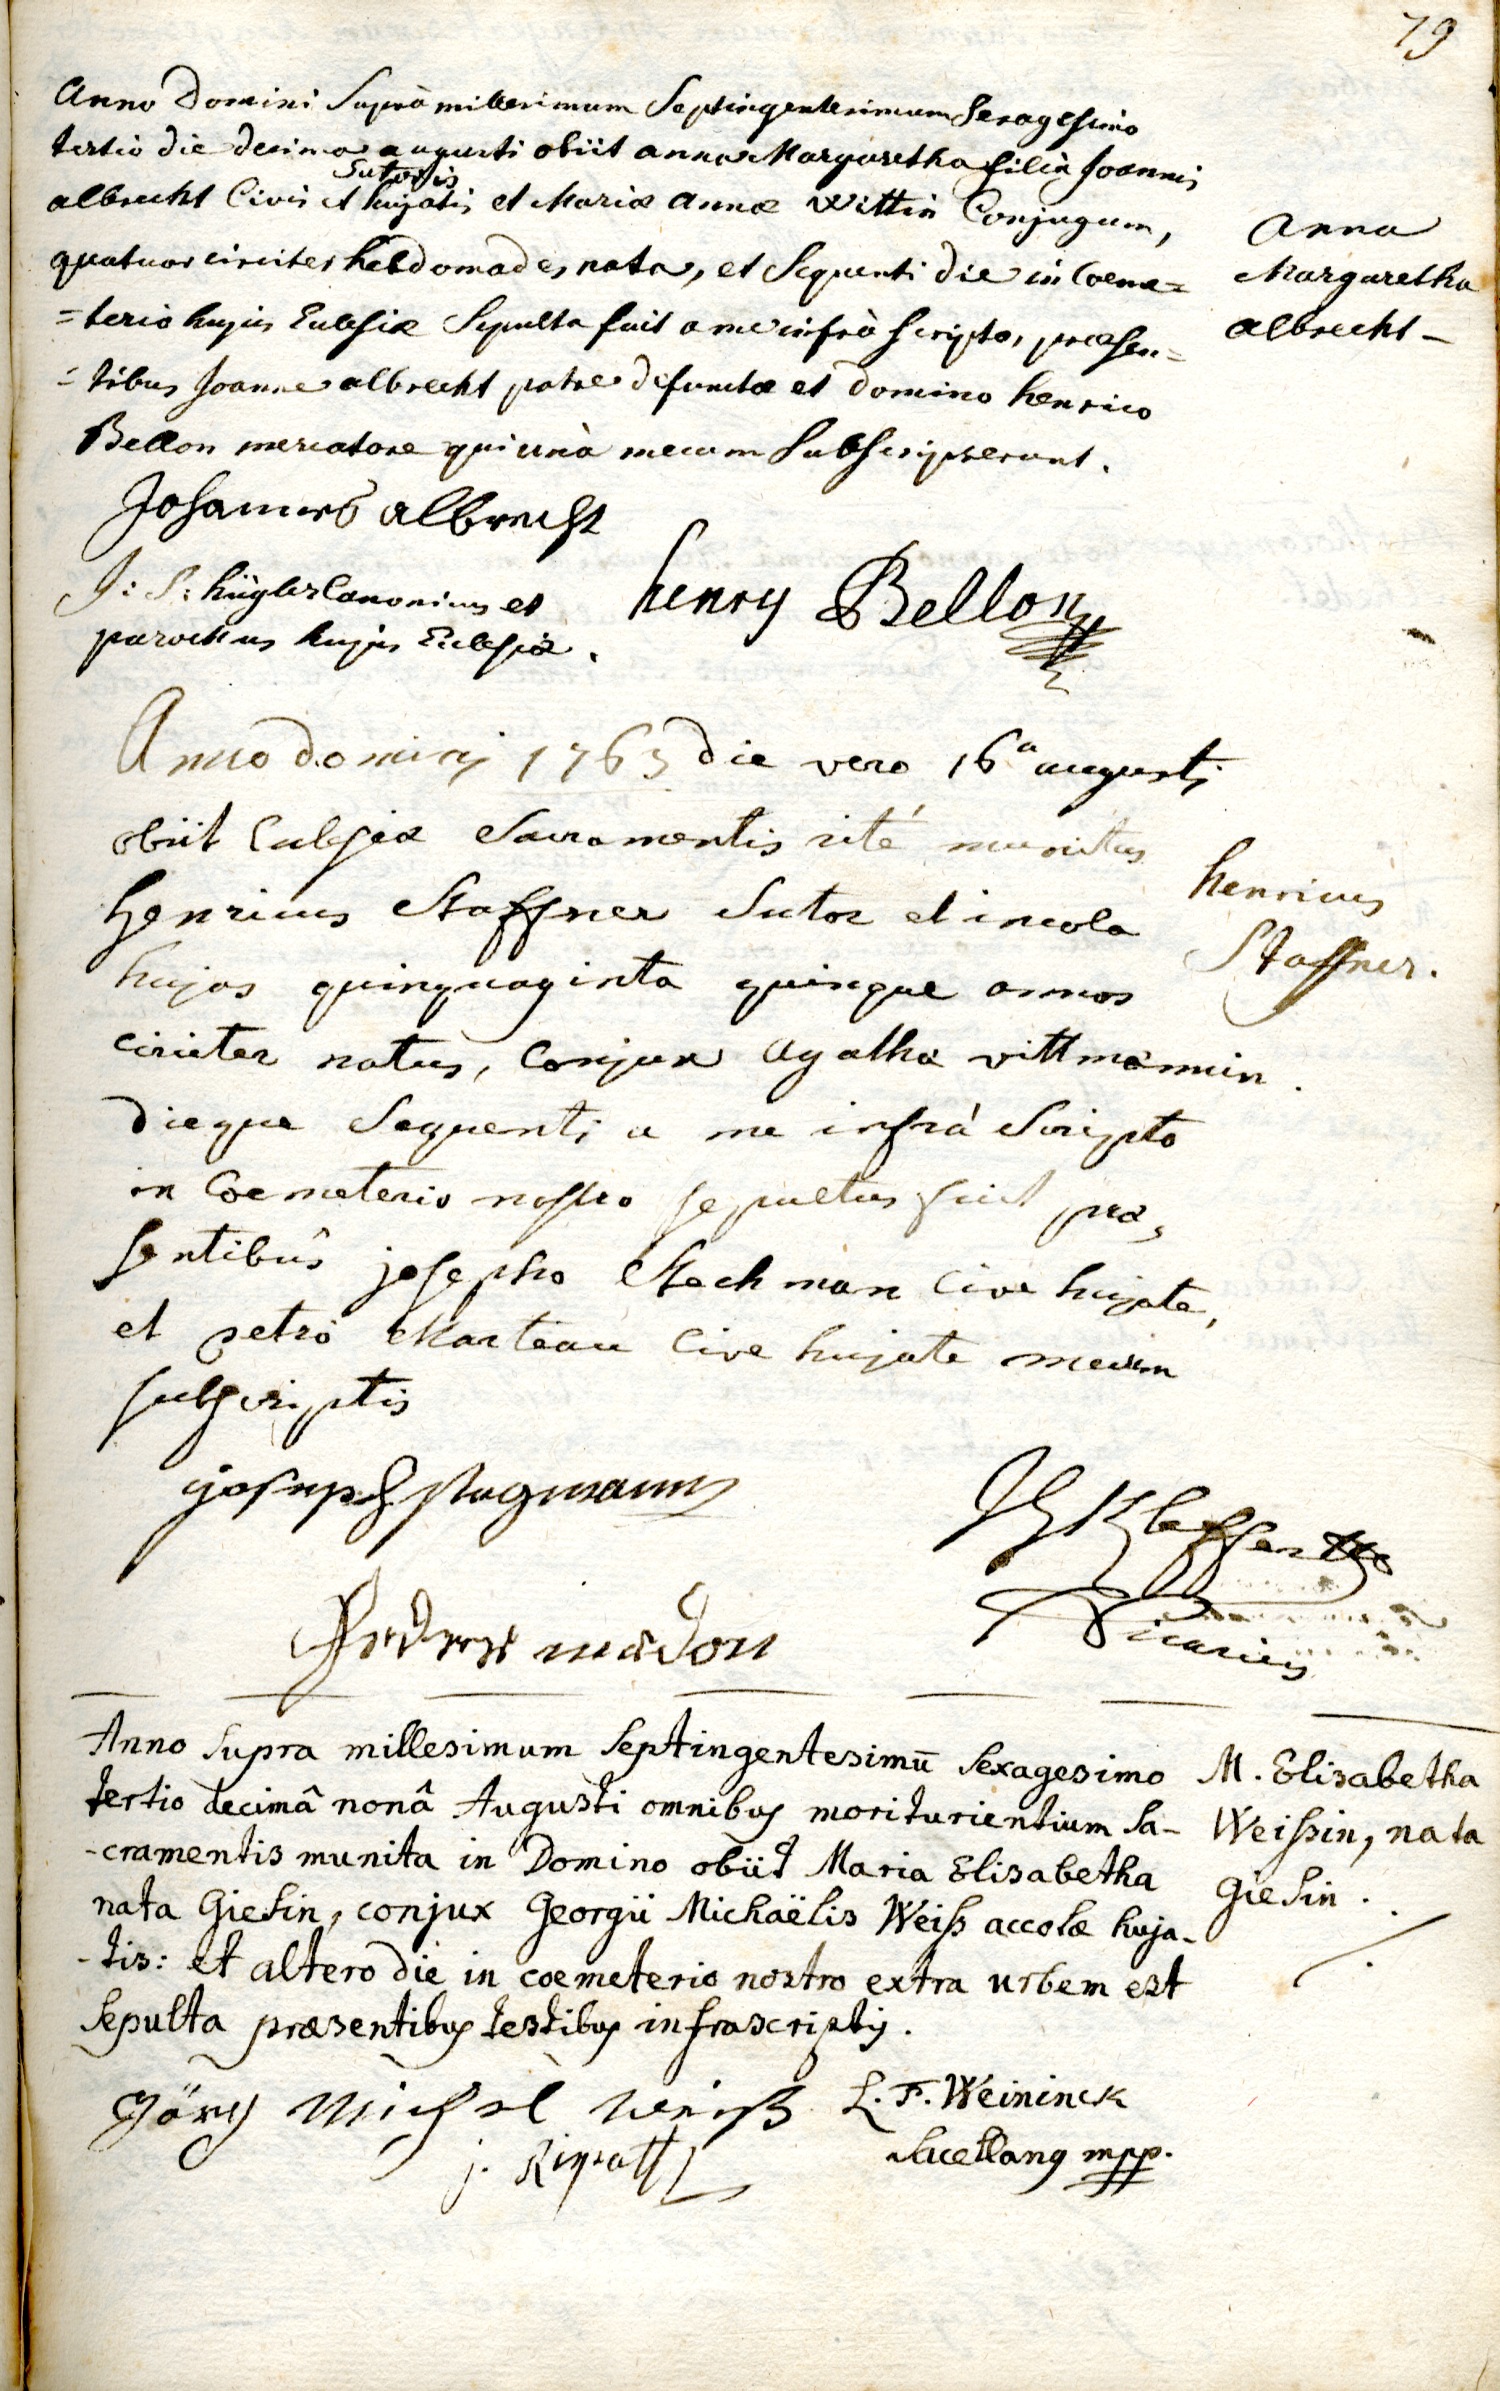 79
Anno Domini Suprà millesimum Septingentesimum Sexagesimo
tertio die decima augusti obiit anna Margaretha filia Joannis
Sutoris
albrecht Civis et hujatis et Mariæ Annæ Wittin Conjugum,
Anna
Margaretha
albrecht -
quatuor circiter hebdomades nata, et Sequenti die in Coeme=
=terio hujus Ecclesiæ Sepulta fuit a me infrà scripto, præsen=
=tibus Joanne albrecht patre defunctæ et Domino henrico
Bellon mercatore qui unà mecum Subscripserunt.
Johannes albrecht
J: S: Canonicus et
parochus hujus Ecclesiæ.
henry Bellon
Anno domini 1763 die vero 16a augusti
obiit Ecclesiæ Sacramentis rité munitus
henricus Staffner Sutor et incola
henricus
Staffner.
hujas quinquaginta quinque annos
circiter natus, Conjux Agathæ vittmannin.
dieque Sequenti a me infrá Scripto
in Coemeterio nostro sepultus fuit præ,
sentibus josepho Stechman Cive hujate,
et petro Marteau Cive hujate mecum
subscriptis
joseph
Vicarius
Anno supra millesimum septingentesimū sexagesimo
tertio decimâ nonâ Augusti omnibus moriturientium Sa-
-cramentis munita in Domino obiit Maria Elisabetha
nata Giesin, conjux Georgii Michaëlis Weiss accolæ huja-
-tis: et altero die in coemeterio nostro extra urbem est
Sepulta præsentibus testibus infrascriptis.
M. Elisabetha
Weissin, nata
Giesin.
Jörg Michel Weiß
L. F. Weininck
Sacellanus mpp.